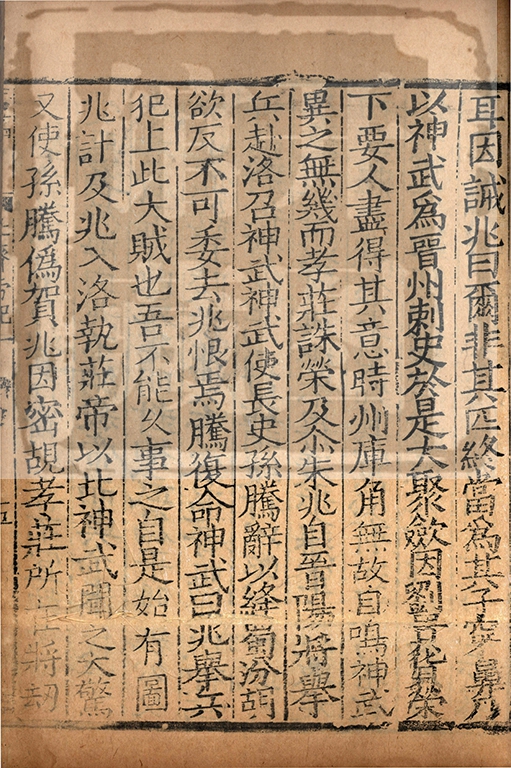 耳因誡兆曰爾非其匹終當為其子穿鼻乃
以神武爲晉州刺史於是大聚歛因劉貴貨榮
下要人盡得其意時州庫角無故自鳴神武
異之無幾而孝莊誅榮及尒朱兆自晉陽將舉
兵赴洛召神武神武使長史孫騰辭以絳蜀汾胡
欲反不可委去兆恨焉騰復命神武曰兆舉兵
犯上此大賊也吾不能久事之自是始有圖
兆計及兆入洛執莊帝以北神武聞之大驚
又使孫騰偽賀兆因密覘孝莊所在將劫
北齊帝紀一
五